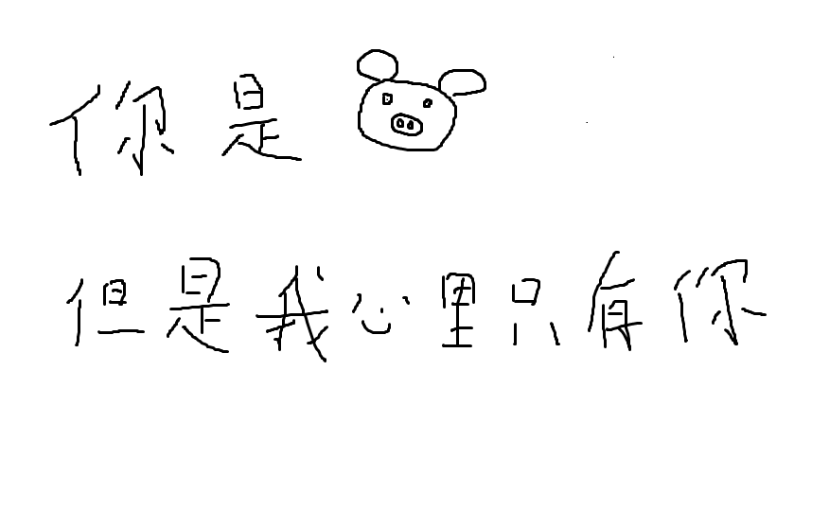 你是
但是我心里只有你